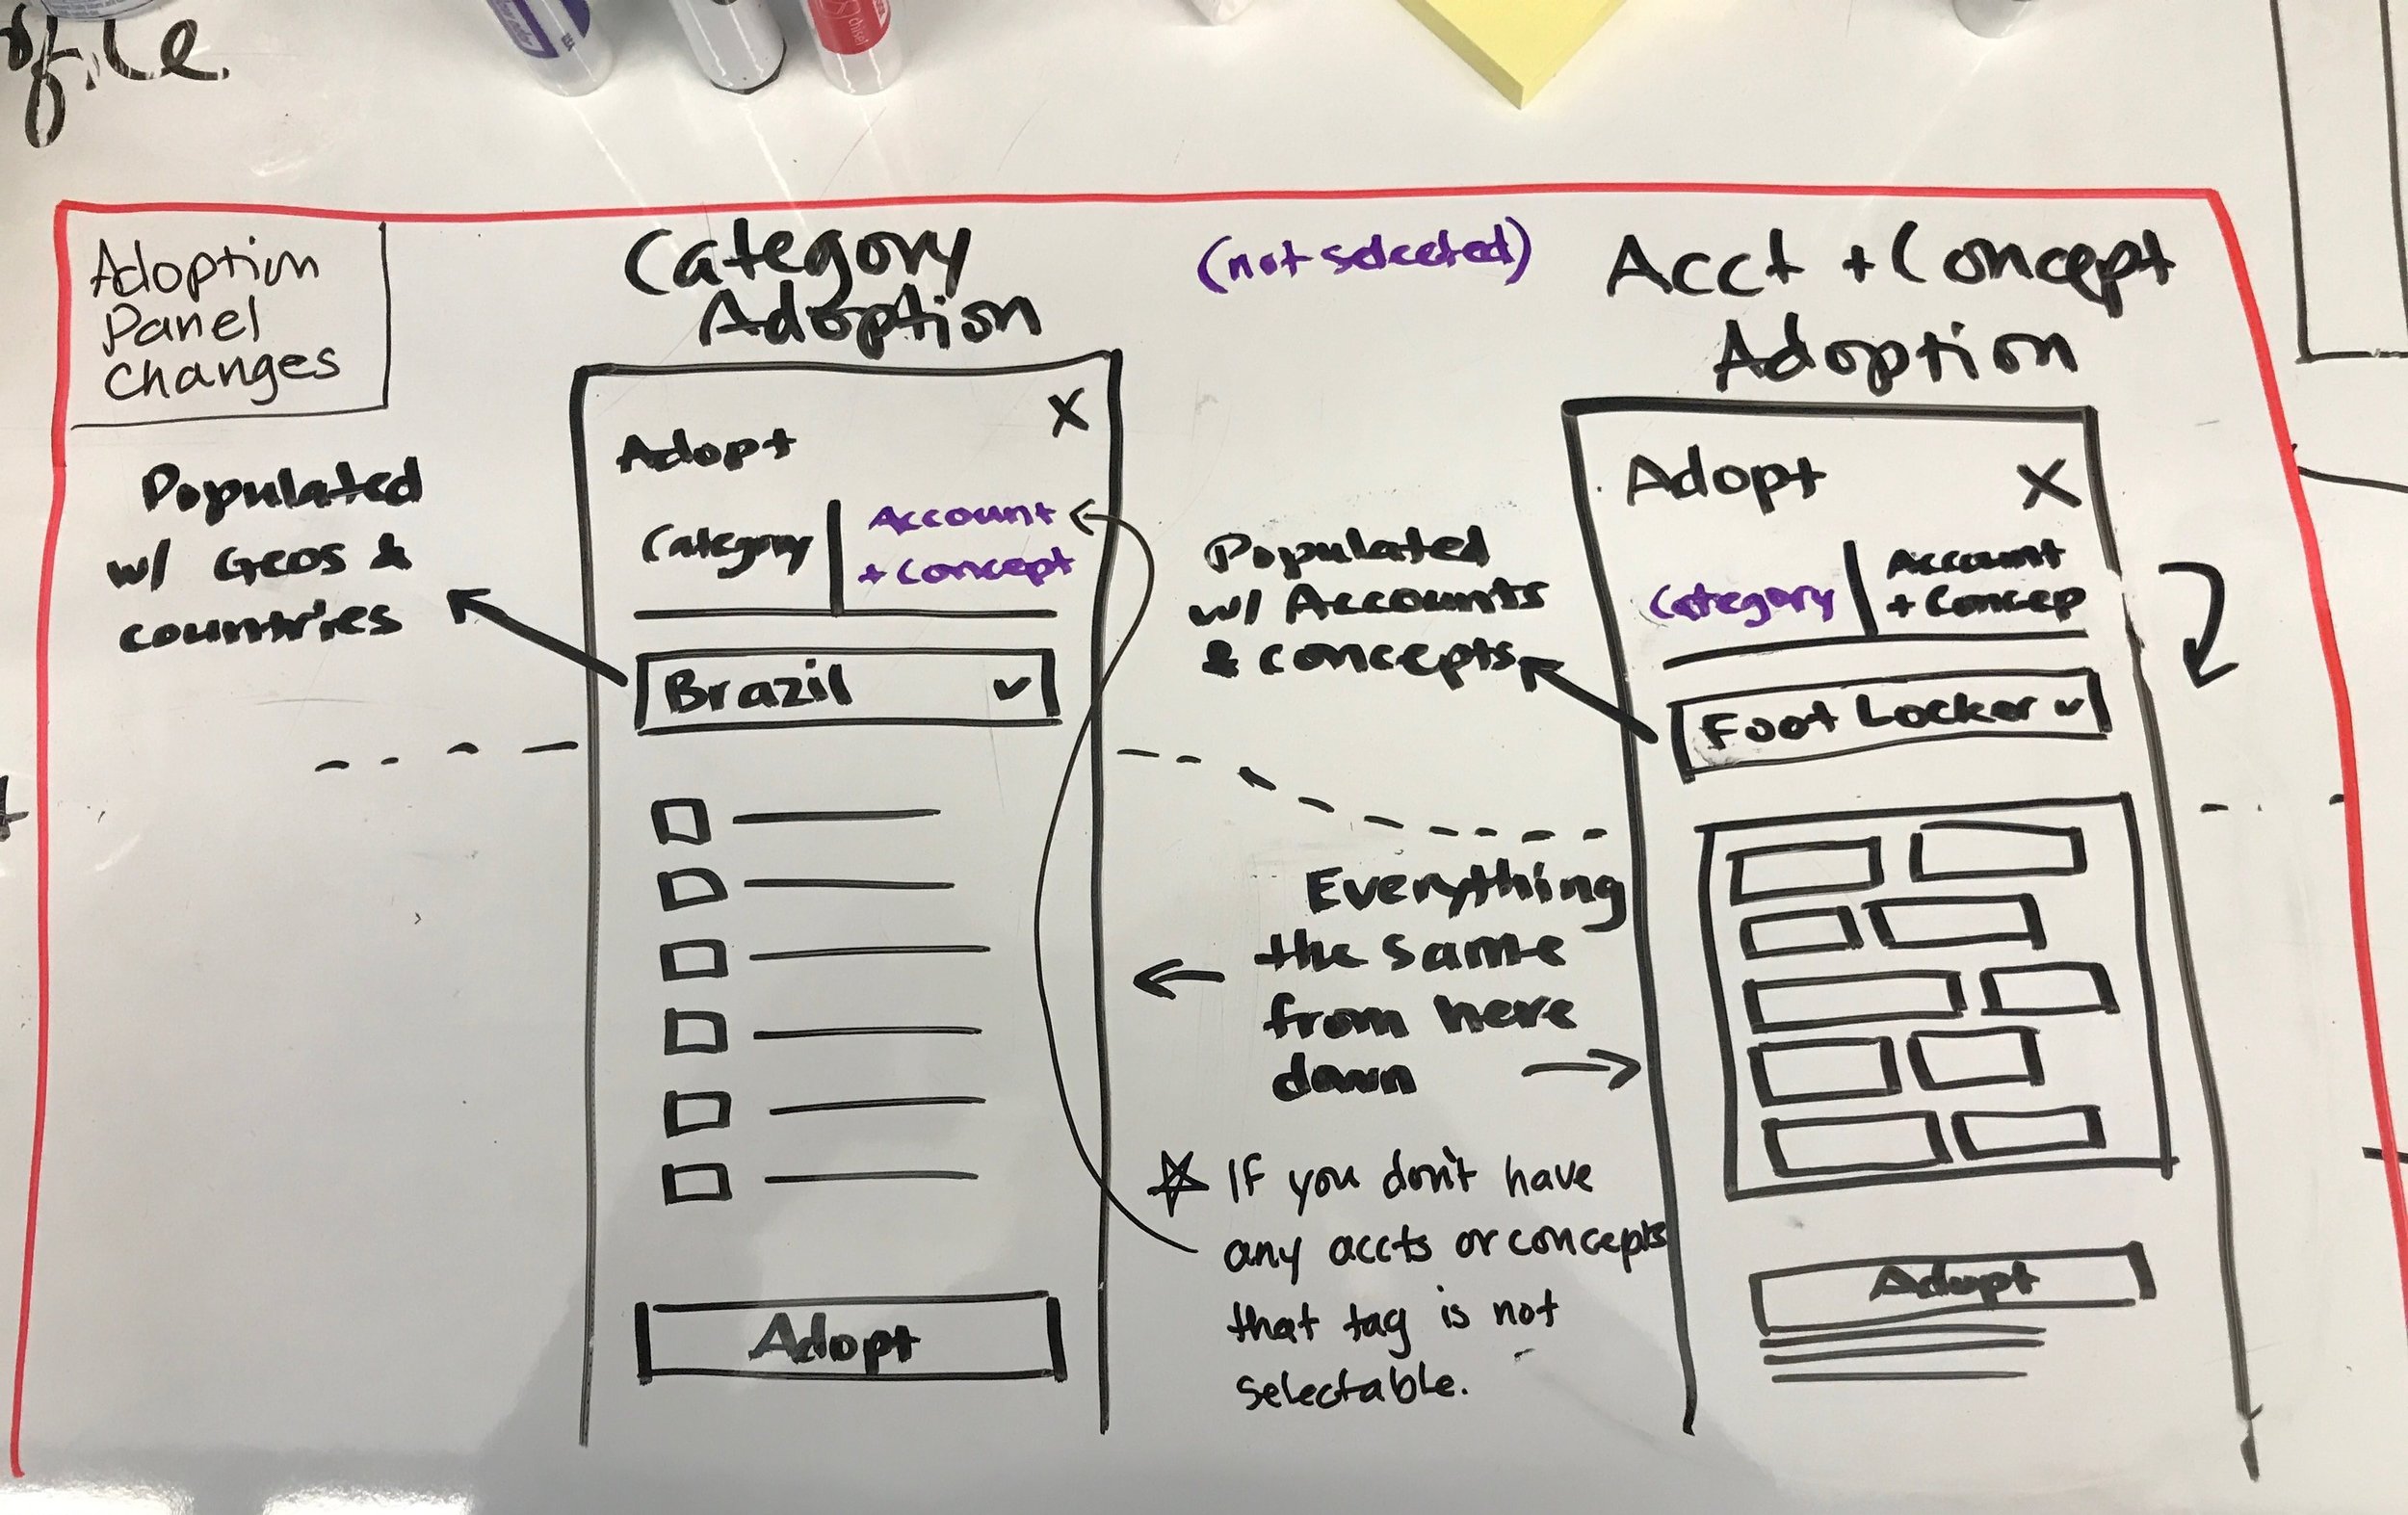 Adoption
Panel
Changes
Category
Adoption
(not selected)
Acct + Concept
Adoption
Populated
w/ Geos &
countries
X
Adopt
Category
Account
+ Concept
Brazil
Adopt
Populated
w/ Accounts
& concepts
Everything
the same
from here
down
☆ If you don't have
any accts or concepts
that tag is not
selectable.
Adopt
X
Category
Account
+ Concep
Foot Locker
Adopt